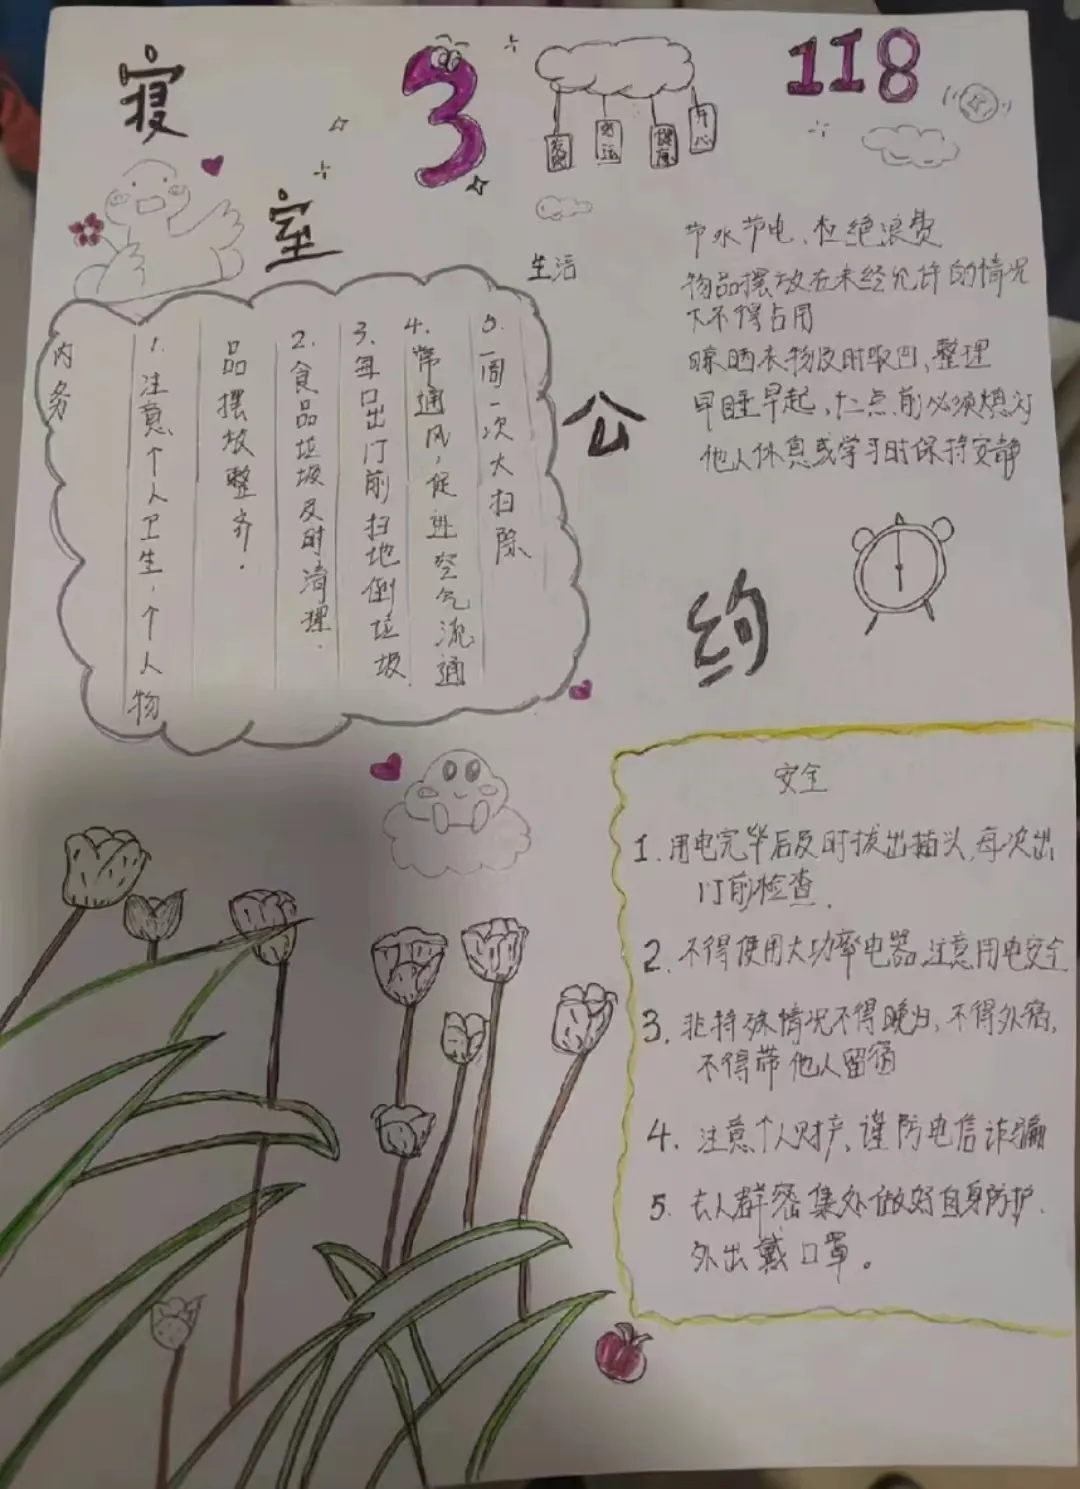 寝
室
公
约
3
118
好运
健康
开心
生活
节水节电、杜绝浪费
物品摆放在未经允许的情况
下不得占用
晾晒衣物及时取回、整理
早睡早起、十二点前必须熄灯
他人休息或学习时保持安静
内务
1.注意个人卫生,个人物
品摆放整齐.
2.食品垃圾及时清理.
3.每日出门前扫地倒垃圾.
4.常通风,促进空气流通
5.一周一次大扫除.
安全
1.用电完毕后及时拔出插头,每次出
门前检查.
2.不得使用大功率电器,注意用电安全
3.非特殊情况不得晚归、不得外宿,
不得带他人留宿
4.注意个人财产、谨防电信诈骗
5.去人群密集处做好自身防护.
外出戴口罩。